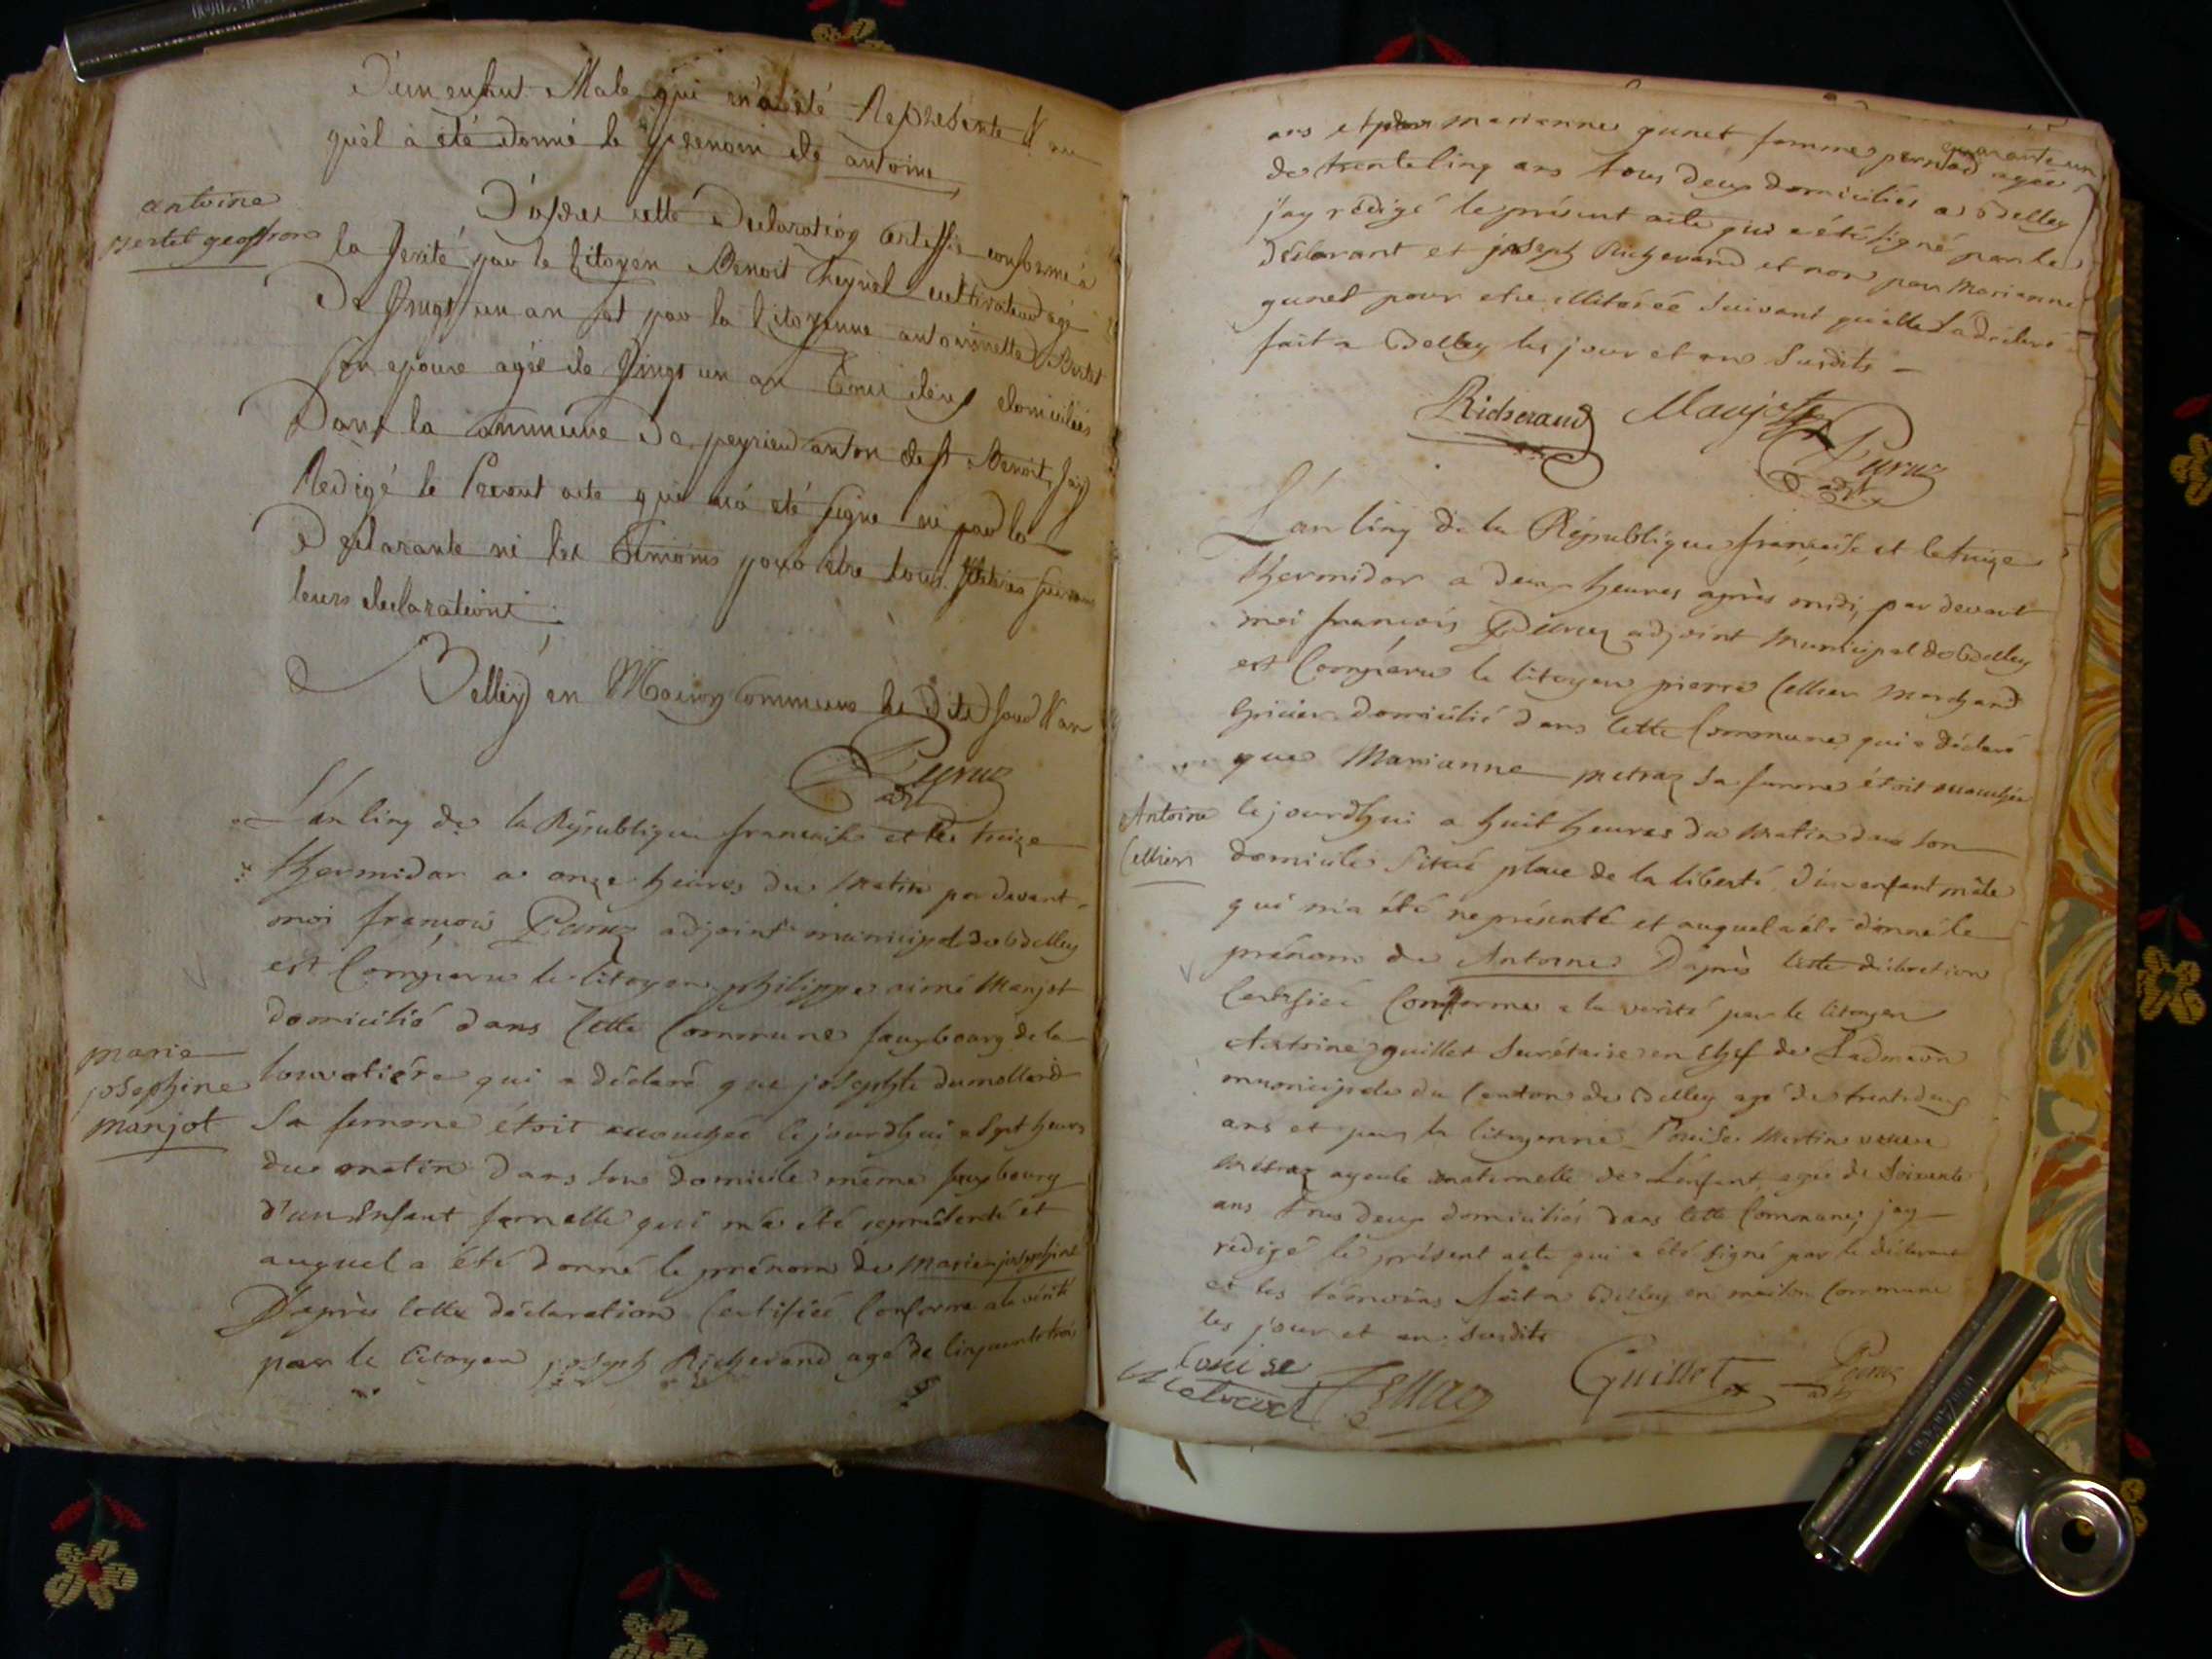 D'un enfant Male qui m'a été Représenté
quel à été donné le prenom de antoine
antoine
bertet geoffron
D'après cette Declaration certiffié conforme à
la Verité par le Citoyen Benoit Cheynel cultivateur agé
De Vingt un an et par la Citoyenne antoinette Bertet
son epouse agée de Vingt un an tous deux domiciliés
Dans la commune De peyrieu canton de st Benoit, Jay
Redigé le Present acte qui n'a eté signé ni par la
Declarante ni les temoins pour etre tous illitérés suivant
leurs declarations.
Belley en Maison commune les Dits jour et an
Peruz
adjt
L'an cinq de la République francaise et le treize
thermidor a onze heures du matin par devant
moi françois Peruz adjoint municipal de Belley
est Comparu le citoyen philippe aimé Manjot
domicilié dans Cette Commune fauxbourg de la
marie
josephine
manjot
louvatière qui a déclaré que josephte dumollard
Sa femme étoit accouchée cejourdhui a Sept heures
du matin dans son domicile même fauxbourg
d'un Enfant femelle qui m'a été représenté et
auquel a été donné le prénom de marie josephine
D'après Cette déclaration Certifiée Conforme a la vérité
par le Citoyen joseph Richerand agé de Cinquante trois
ans et marianne gunet femme pernod agée
quarante un
de trente Cinq ans tous deux domiciliés a Belley
j'ay rédigé le présent acte qui a été signé par le
déclarant et joseph Richerand et non par Marianne
gunet pour etre illitérée suivant quelle l'a déclaré
fait a Belley les jour et an Susdits
Richerand Manjot
Peruz
adjt
L'an Cinq de la République française et le treize
thermidor a deux heures après midi, par devant
moi françois Peruz adjoint municipal de Belley
est Comparu le citoyen pierre Cellier marchand
Epicier domicilié dans Cette Commune qui a déclaré
que Marianne metraz sa femme étoit accouchée
Antoine
Cellier
cejourdhui a huit heures du matin dans son
domicile Situé place de la liberté d'un enfant mâle
qui m'a été représenté et auquel a été donné le
prénom de Antoine D'après Cette déclaration
Certifiée Conforme a la vérité par le citoyen
Antoine guillet Secrétaire en Chef de L'admaon
municipale du Canton de Belley agé de trente deux
ans et par la citoyenne Louise Martin veuve
métraz ayeule maternelle de L'enfant agée de Soixante
ans Tous deux domiciliés dans Cette Commune, jay
rédigé le présent acte qui a été signé par le déclarant
et les témoins fait a Belley en maison Commune
les jour et an susdits
Louise
Cellier Guillet Peruz
adjt